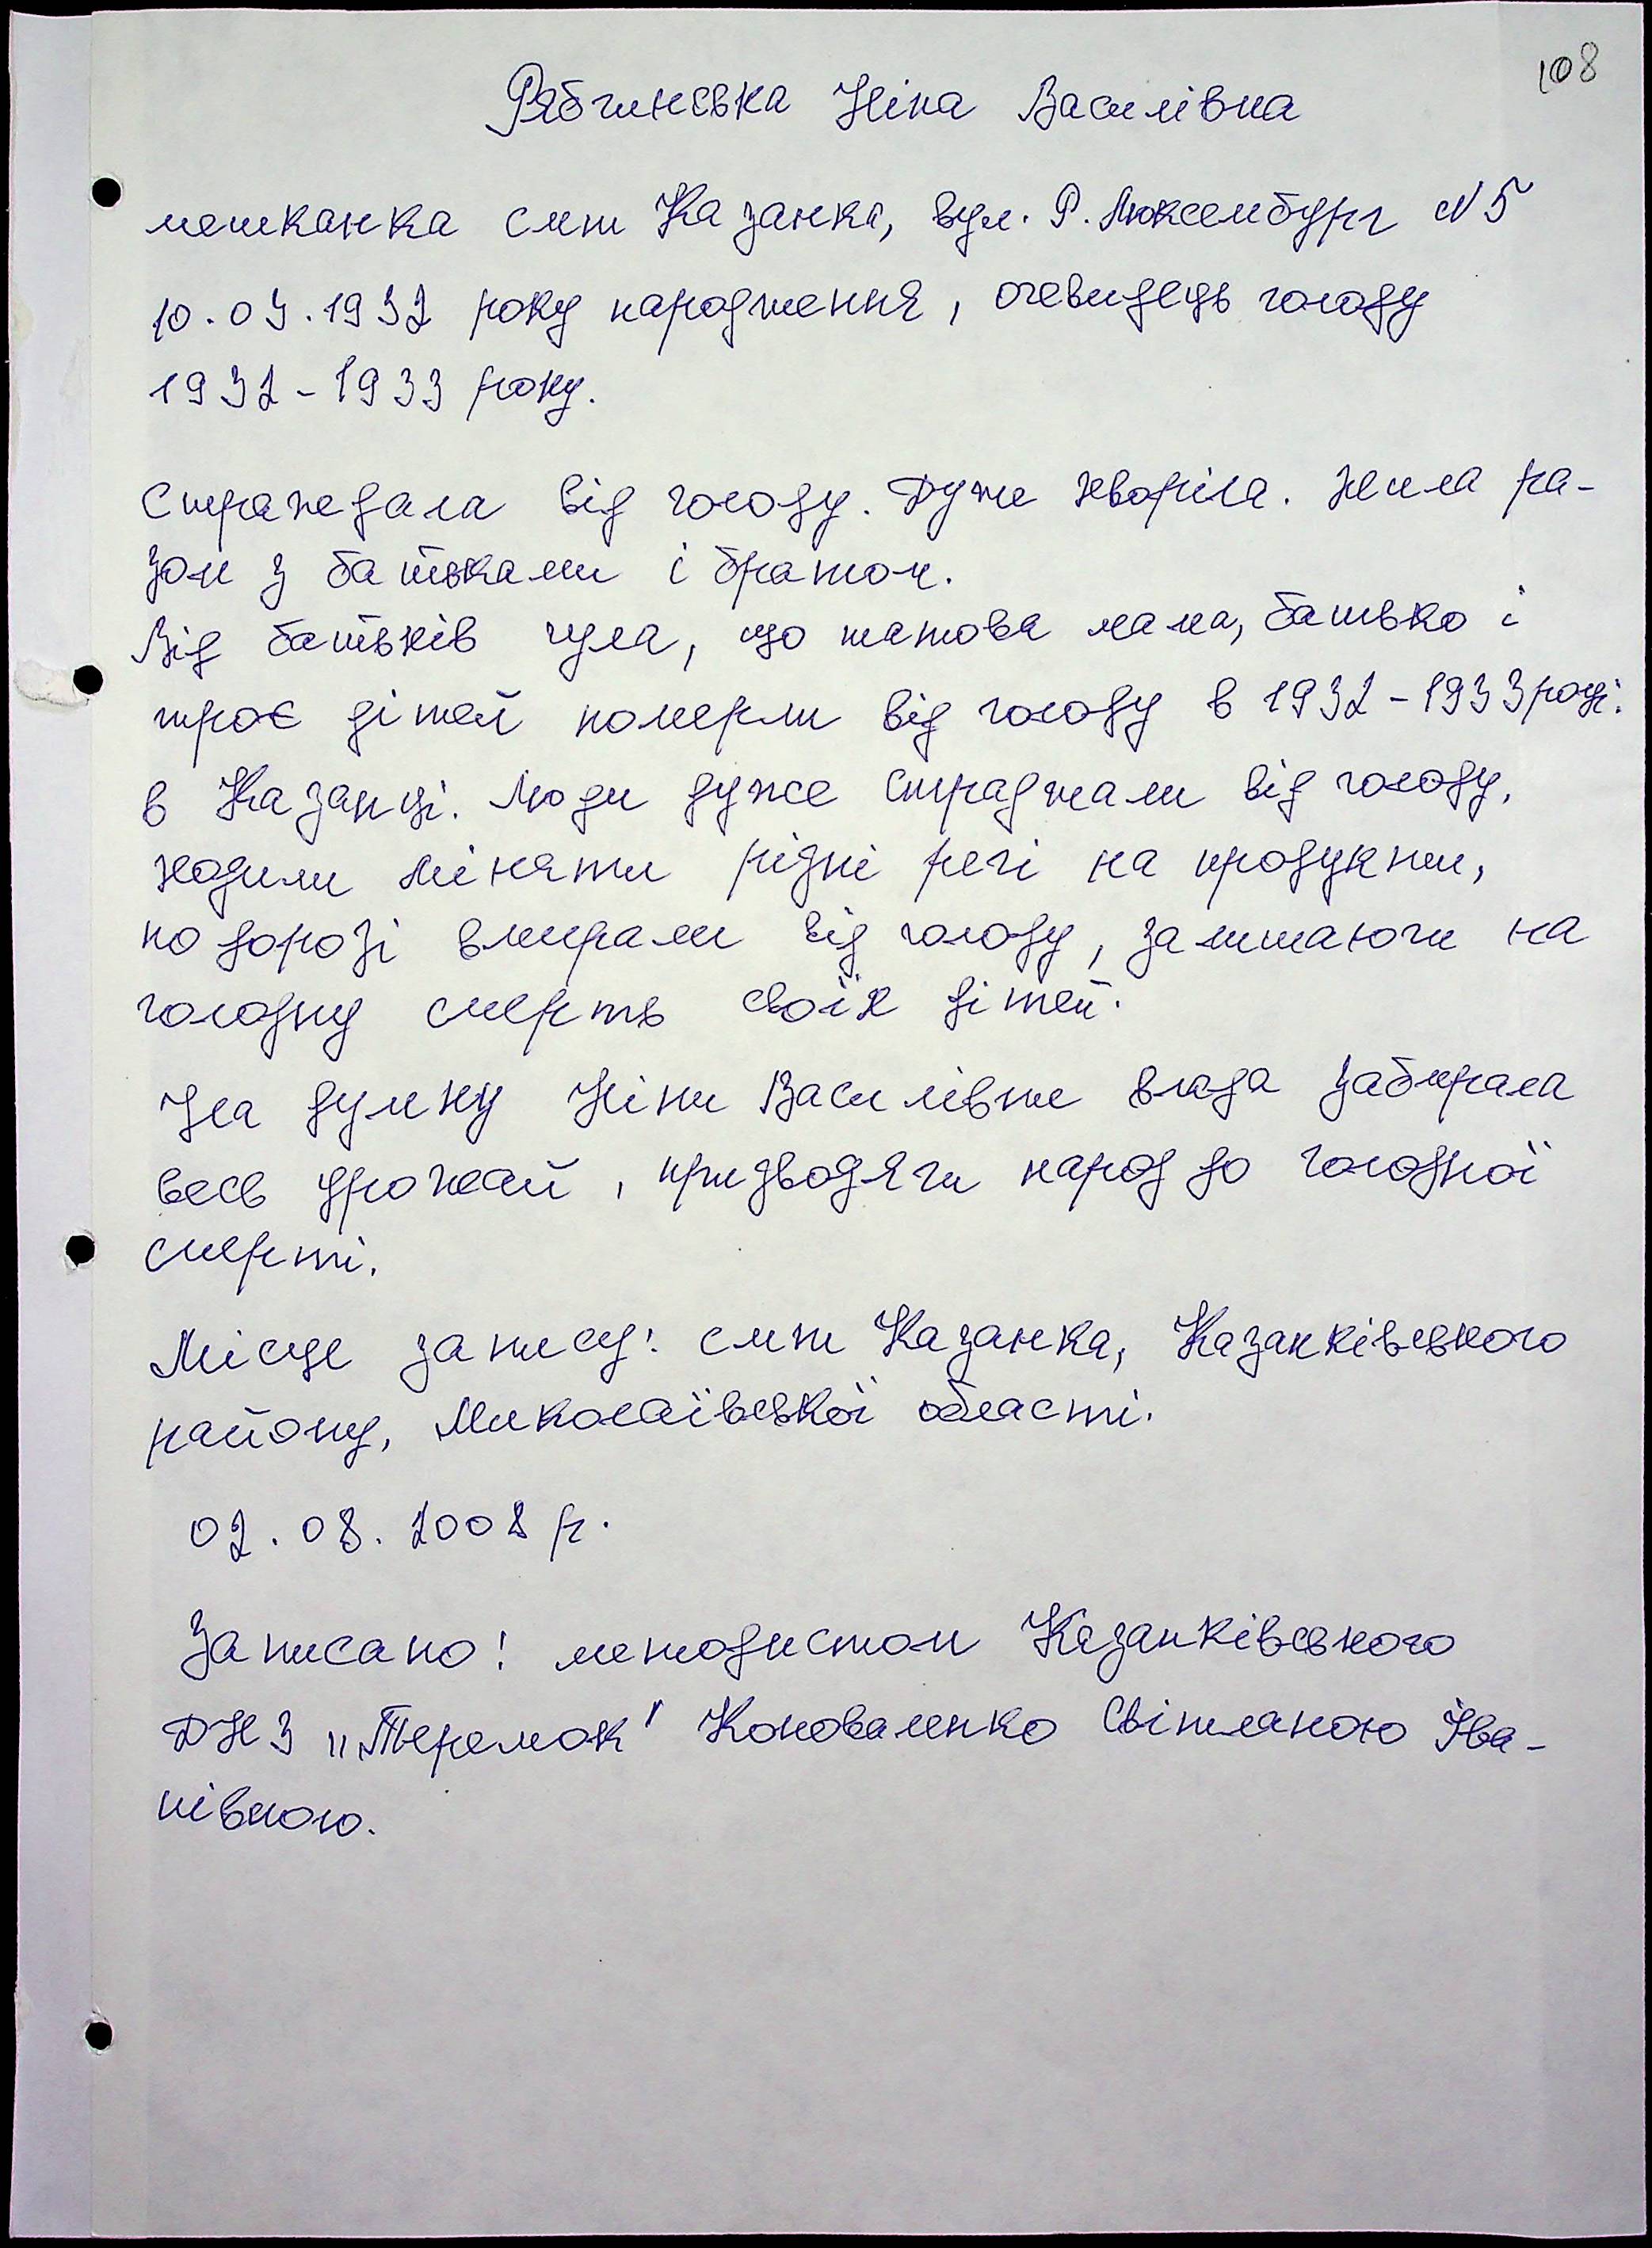 108
Рябчинська Ніна Василівна
мешканка смт Казанка, вул. Р. Люксембург №5
10.03.1932 року народження, очевидець голоду
1932-1933 року.
Страждала від голоду. Дуже хворіла. Жила ра-
зом з батьками і братом.
Від батьків чула, що татова мама, батько і
троє дітей померли від голоду в 1932-1933 році.
в Казанці. Люди дуже страждали від голоду,
ходили міняти різні речі на продукти,
по дорозі вмирали від голоду, залишаючи на
голодну смерть своїх дітей.
На думку Ніни Василівни влада забирала
весь урожай, призводячи народ до голодної
смерті.
Місце запису: смт Казанка, Казанківського
району, Миколаївської області.
02.08.2008 р.
Записано: методистом Казанківського
ДНЗ „Теремок" Коноваленко Світланою Іва-
нівною.